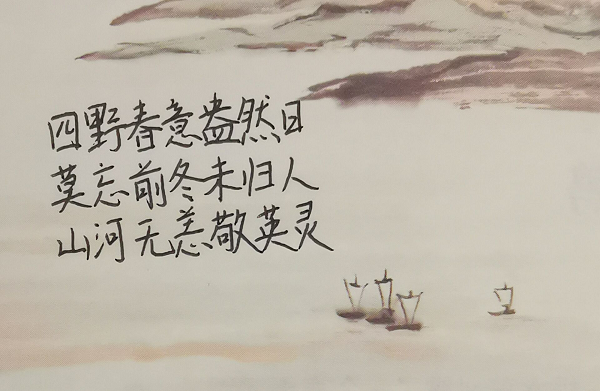 四野春意盎然日
莫忘前冬未归人
山河无恙敬英灵